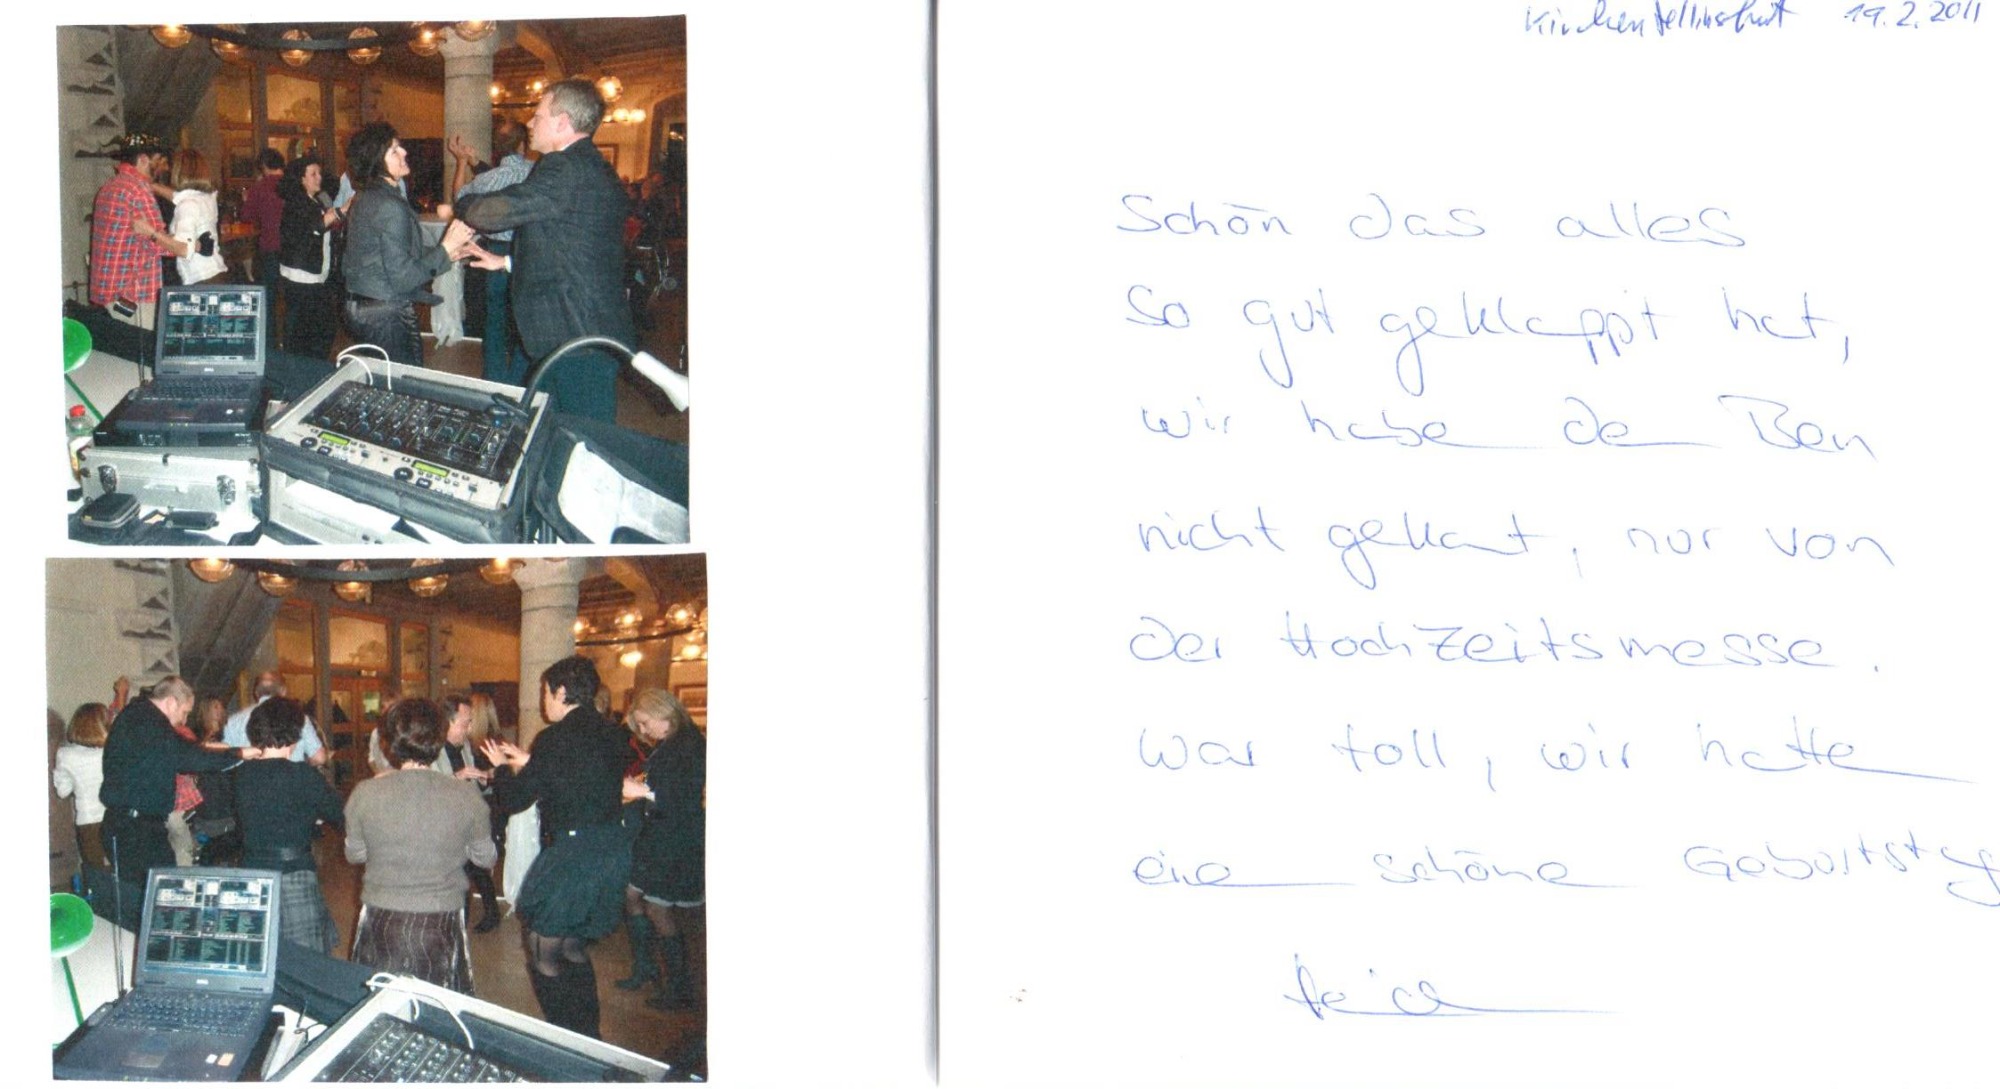 Kirchentellinsfurt 19.2.2011
Schön das alles
so gut geklappt hat,
wir habe de Ben
nicht gekant, nur von
der Hochzeitsmesse.
war toll, wir hatte
eine schöne Geburtstag